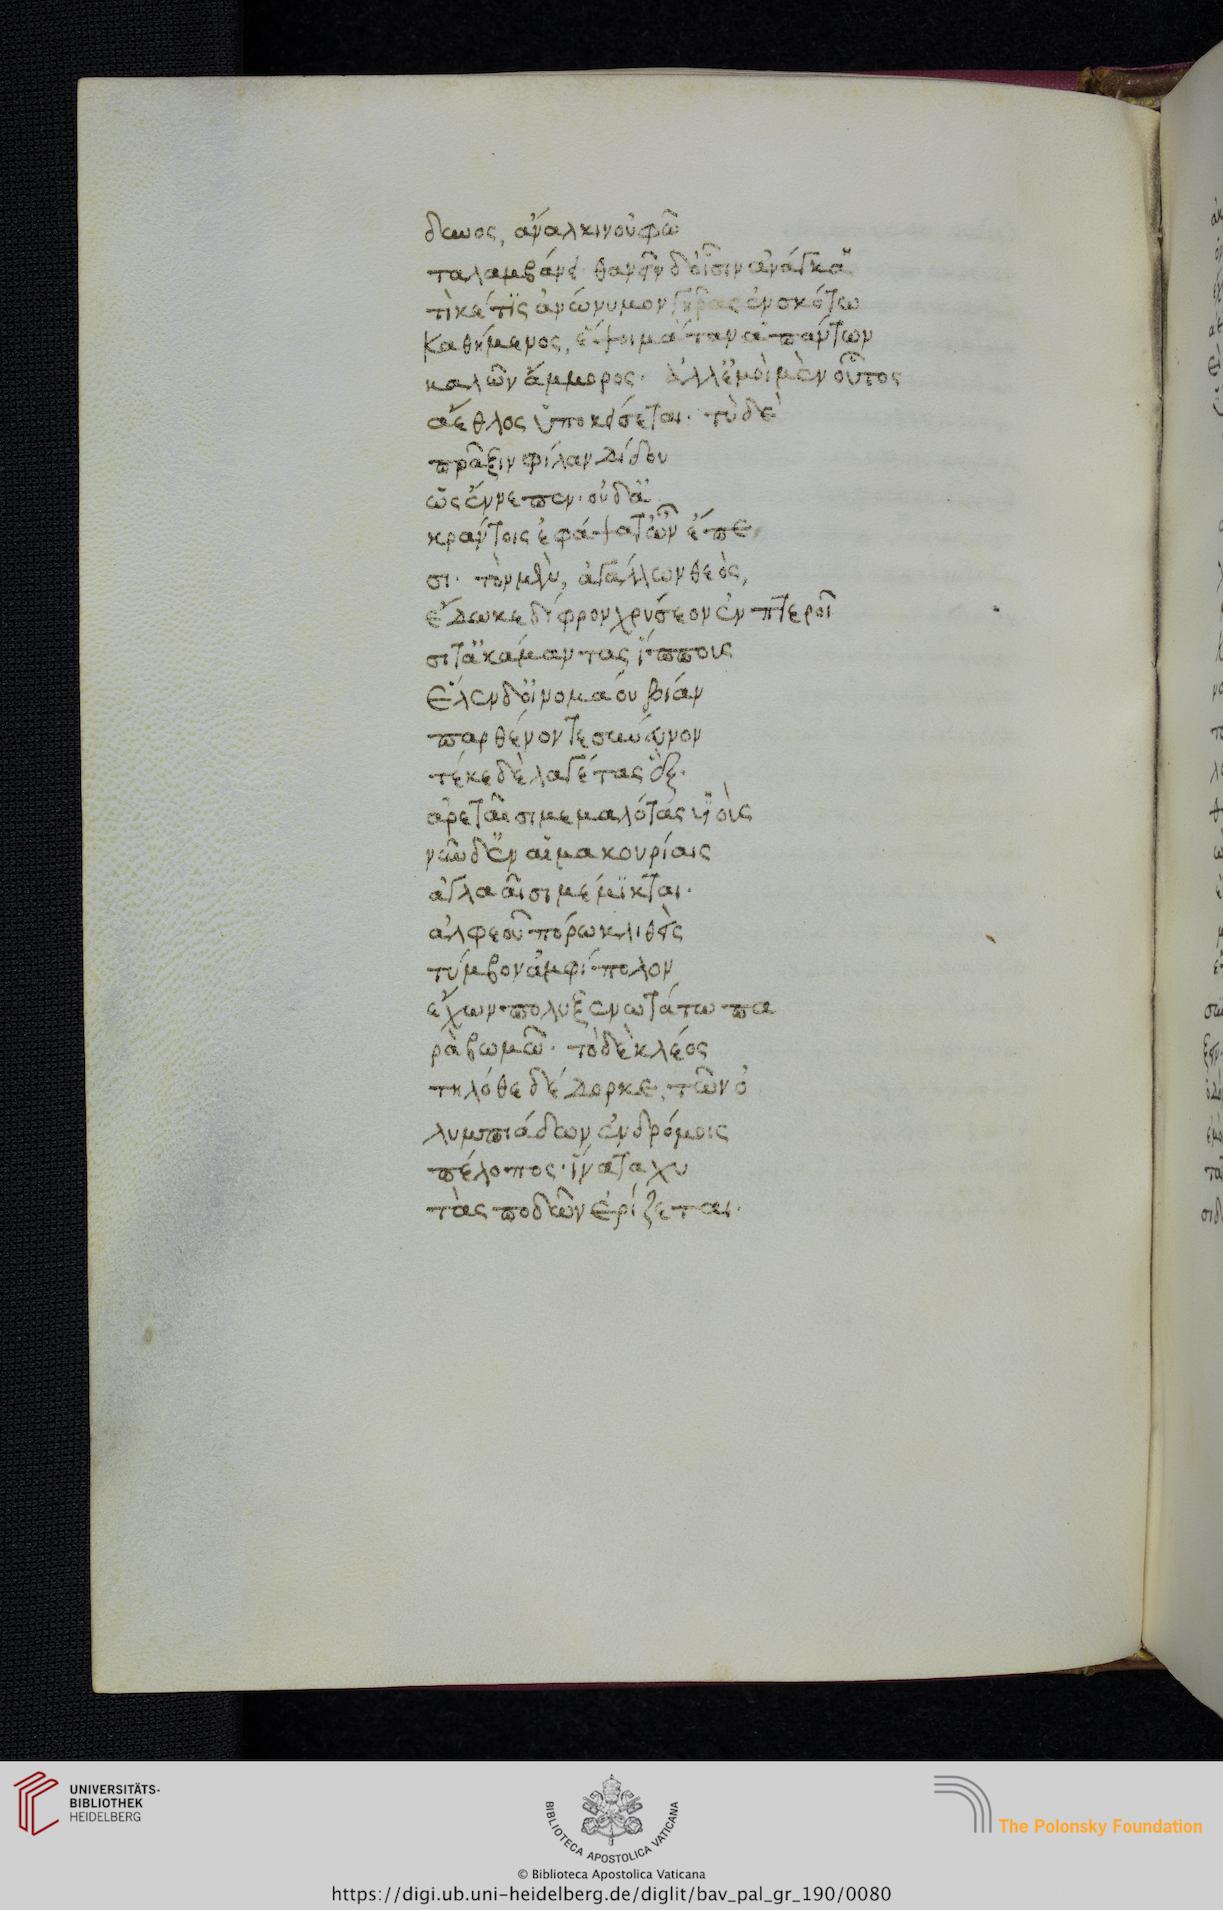 δυνος, ἄναλκιν οὐ φῶ
τα λαμβάνει· θανεῖν δ' οἷσιν ἀνάγκα
τί κέ τις ἀνώνυμον γῆρας ἐν σκότω
καθήμενος, ἕψοι μάταν ἁπάντων
καλῶν ἄμμορος· ἀλλ' ἐμοὶ μὲν οὗτος
ἄεθλος ὑποκείσεται· τὺ δὲ
πρᾶξιν φίλαν δίδου
ὣς ἔννεπεν· οὐδ' ἀ
κράντοις ἐφάψατ' ὦν ἔπε
σι· τὸν μὲν, ἀγάλλων θεὸς,
ἔδωκε δίφρον χρύσεον ἐν πτεροῖ
σί τ' ἀκάμαντας ἵπποις
ἕλεν δ' οἰνομάου βίαν
παρθένον τε σύνευνον
τέκε δὲ λαγέτας ἓξ·
ἀρεταῖσι μεμαλότας υἱοὺς
νῦν δ' ἐν αἱμακουρίαις
ἀγλααῖσι μέμικται·
ἀλφεοῦ πόρω κλιθεὶς
τύμβον ἀμφίπολον
ἔχων πολυξενωτάτω πα
ρὰ βωμῶ· τὸ δὲ κλέος
τηλόθε δέδορκε, τῶν ὀ
λυμπιάδων ἐν δρόμοις
πέλοπος· ἵνα ταχυ
τὰς ποδῶν ἐρίζεται·
UNIVERSITÄTS-
BIBLIOTHEK
HEIDELBERG
BIBLIOTECA APOSTOLICA VATICANA
The Polonsky Foundation
© Biblioteca Apostolica Vaticana
https://digi.ub.uni-heidelberg.de/diglit/bav_pal_gr_190/0080